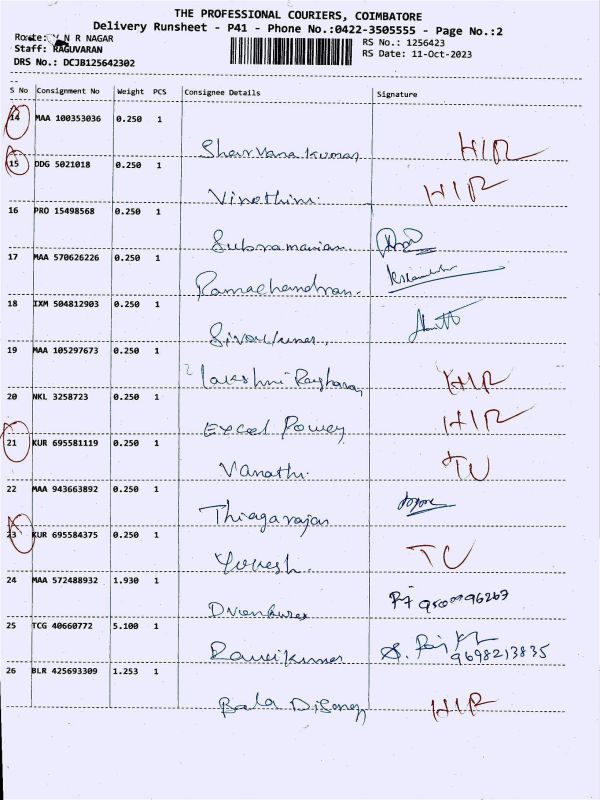 THE PROFESSIONAL COURIERS, COIMBATORE
Delivery Runsheet - P41 - Phone No.:0422-3505555 - Page No.:2
Route: V N R NAGAR
RS No.: 1256423
Staff: RAGUVARAN
RS Date: 11-Oct-2023
DRS No.: DCJB125642302
S No Consignment No Weight PCS Consignee Details Signature
14 MAA 100353036 0.250 1
Sharvana kumar HIR
15 DDG 5021018 0.250 1
Vinothini. HIR
16 PRO 15498568 0.250 1
Subramanian
17 MAA 570626226 0.250 1
Ramachandran.
18 IXM 504812903 0.250 1
Sivakumar.
19 MAA 105297673 0.250 1
Lakshmi Raghavan HIR
20 NKL 3258723 0.250 1
Excel Power HIR
21 KUR 695581119 0.250 1
Vanathi. TU
22 MAA 943663892 0.250 1
Thiagarajan
23 KUR 695584375 0.250 1
Yogesh. TC
24 MAA 572488932 1.930 1
25 TCG 40660772 5.100 1
Ravikumar 9698213835
26 BLR 425693309 1.253 1
Bala HIR